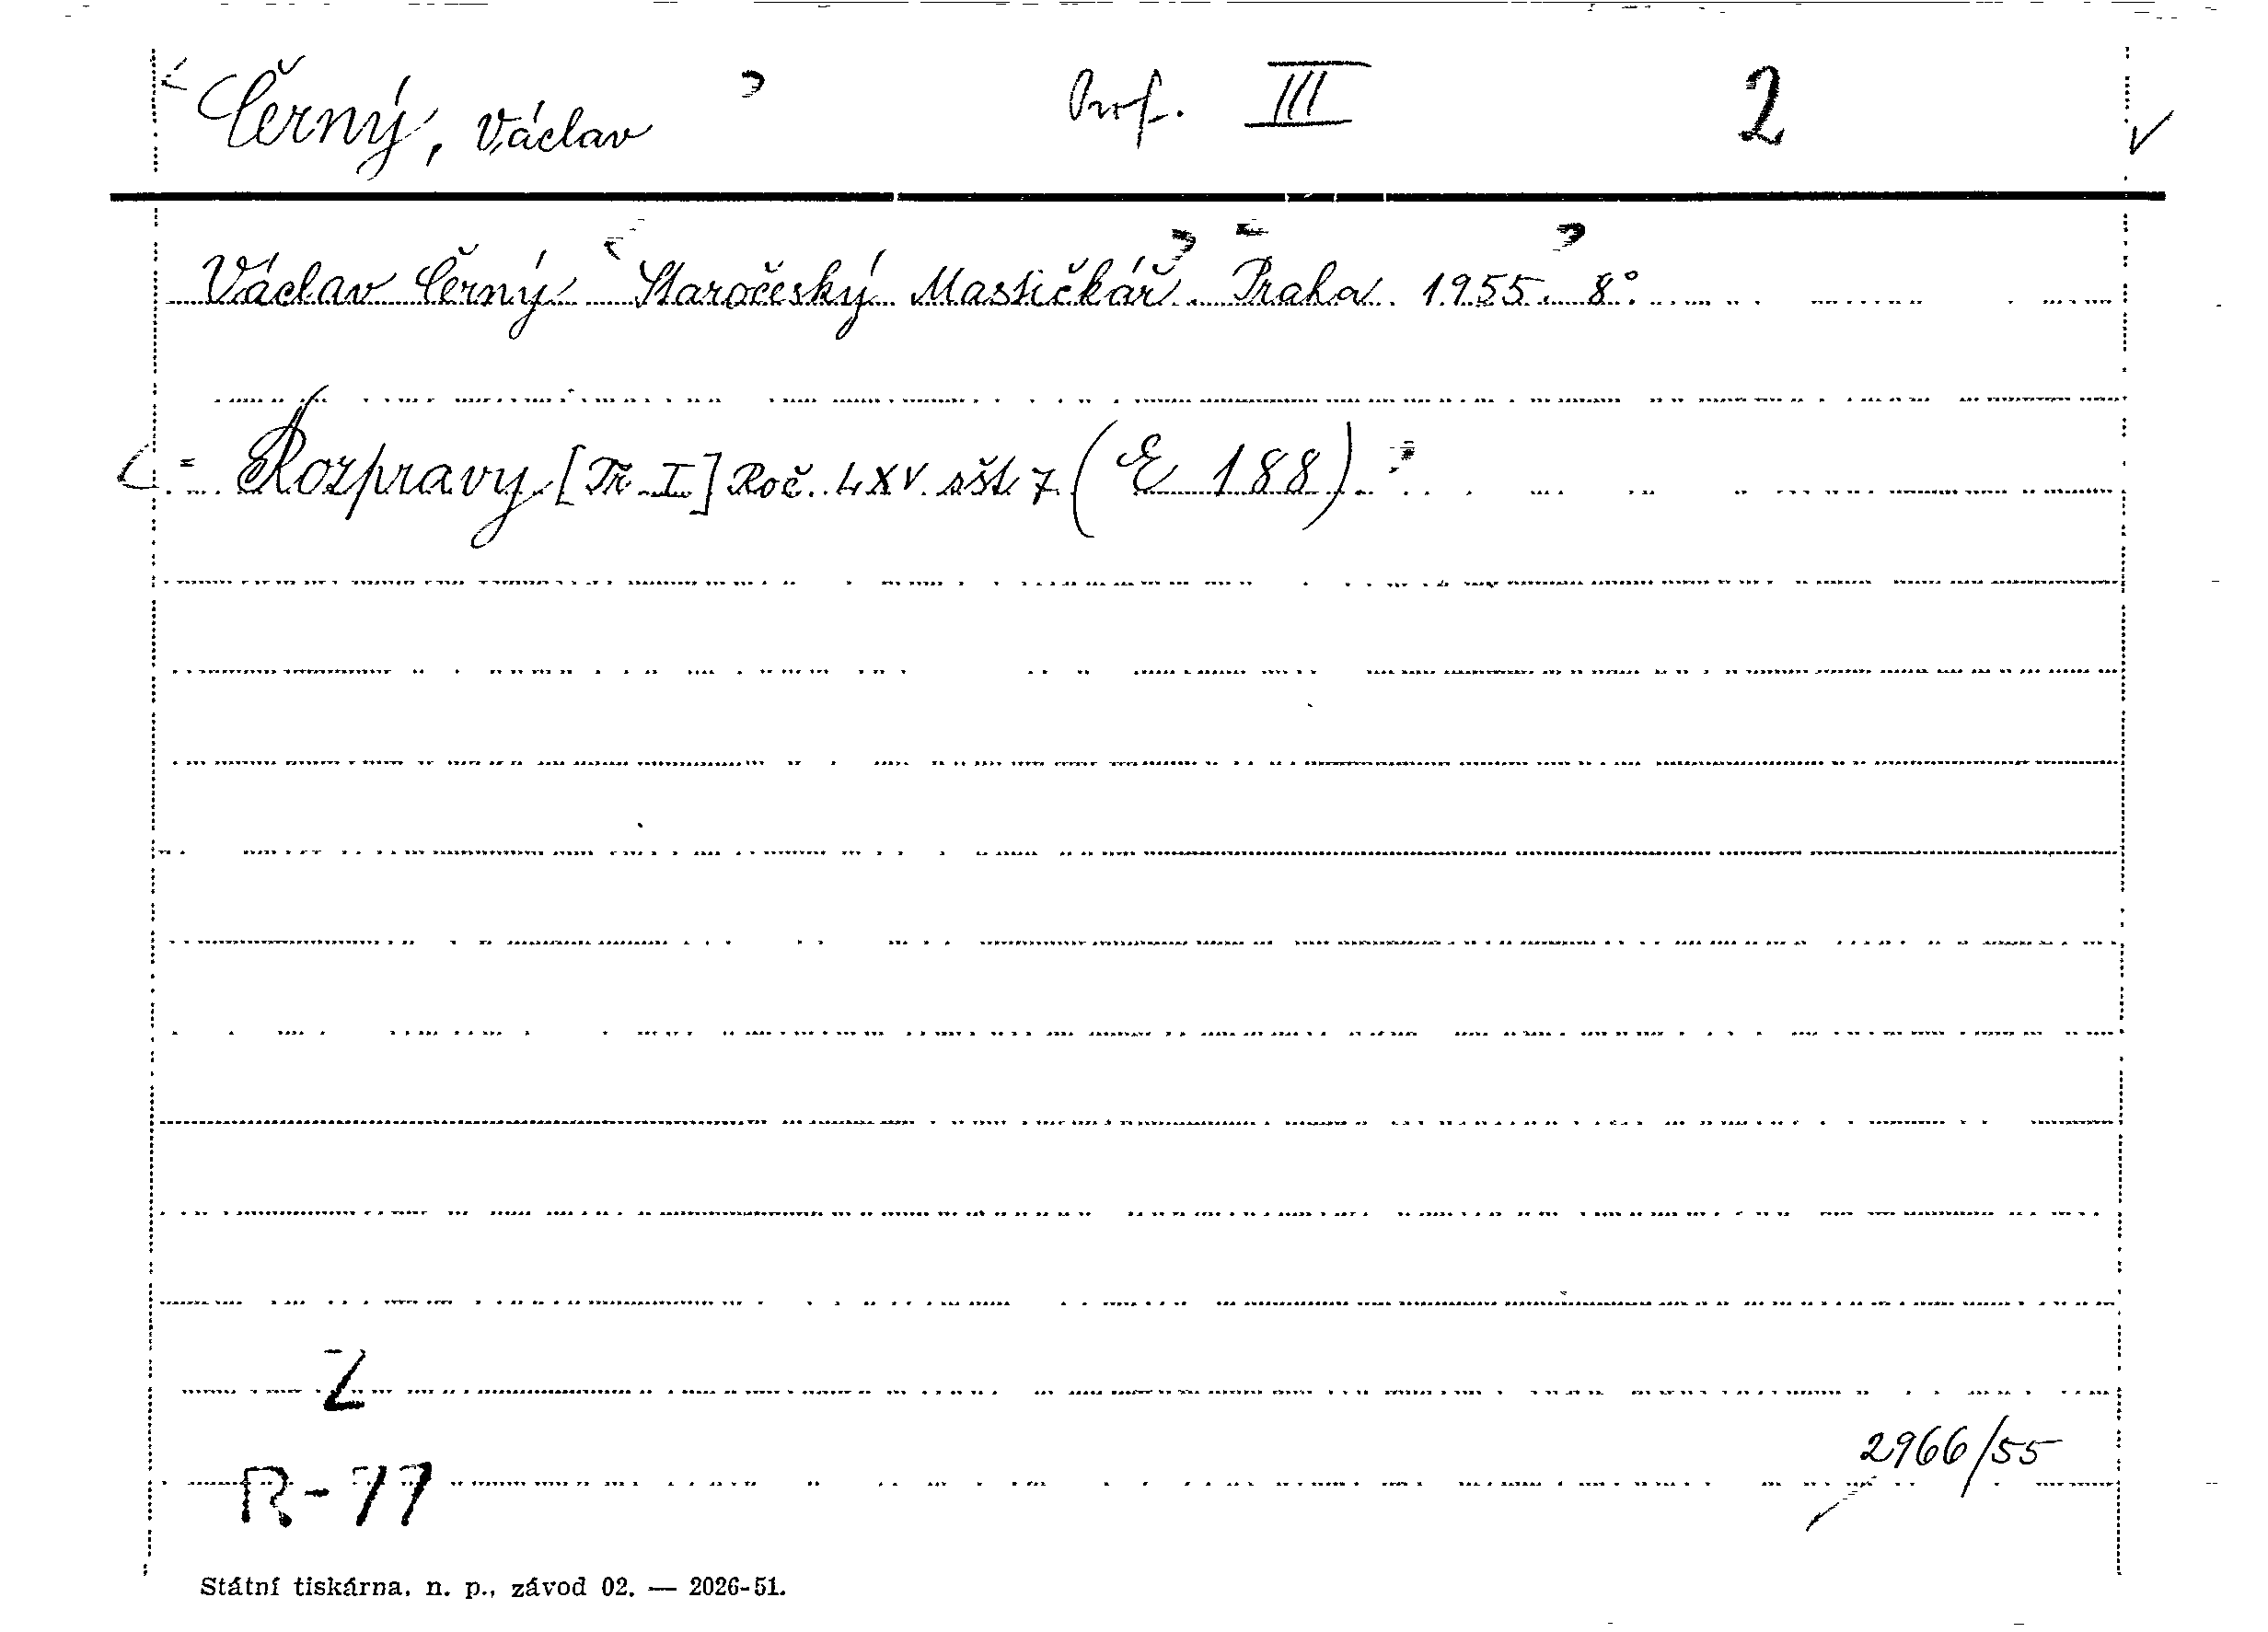 Černý, Václav Prof. III 2
Václav Černý Staročeský Mastičkář. Praha. 1955. 8°.
= Rozpravy [Tř. I] Roč. LXV. sšt. 7. (E 188).
Z
2966/55
R-77
Státní tiskárna, n. p., závod 02. — 2026-51.